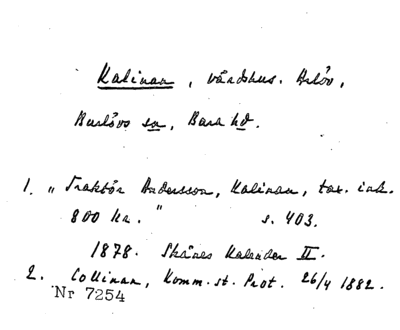 Kalinan, värdshus. Arlöv,
Burlövs sn, Bara hd.
1. „Traktör Andersson, Kalinan, tax. ink.
800 kr." s. 403.
1878. Skånes Kalender II.
2. Collinan, Komm. st. Prot. 26/4 1882.
Nr 7254